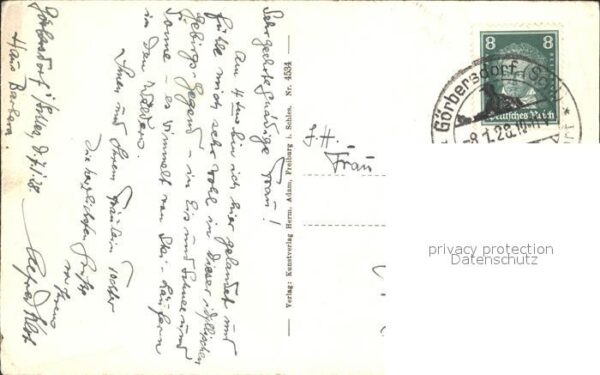 Görbersdorf i/Schles, d. 7.1.28.
Haus Barbara.
Sehr geehrte gnädige Frau!
Am 4ten bin ich hier gelandet und
fühle mich sehr wohl in dieser idyllischen
Gebirgs-Gegend - in Eis und Schnee und
Sonne - es wimmelt von Ski-Läufern
in den Wäldern.
Ihnen und Ihrem Fräulein Tochter
die herzlichsten Grüße
von Ihrem
Verlag: Kunstverlag Herm. Adam, Freiburg i. Schles. Nr. 4534
I. H.
Frau
8 8
Deutsches Reich
Görbersdorf (Schl
8.1.28.
privacy protection
Datenschutz